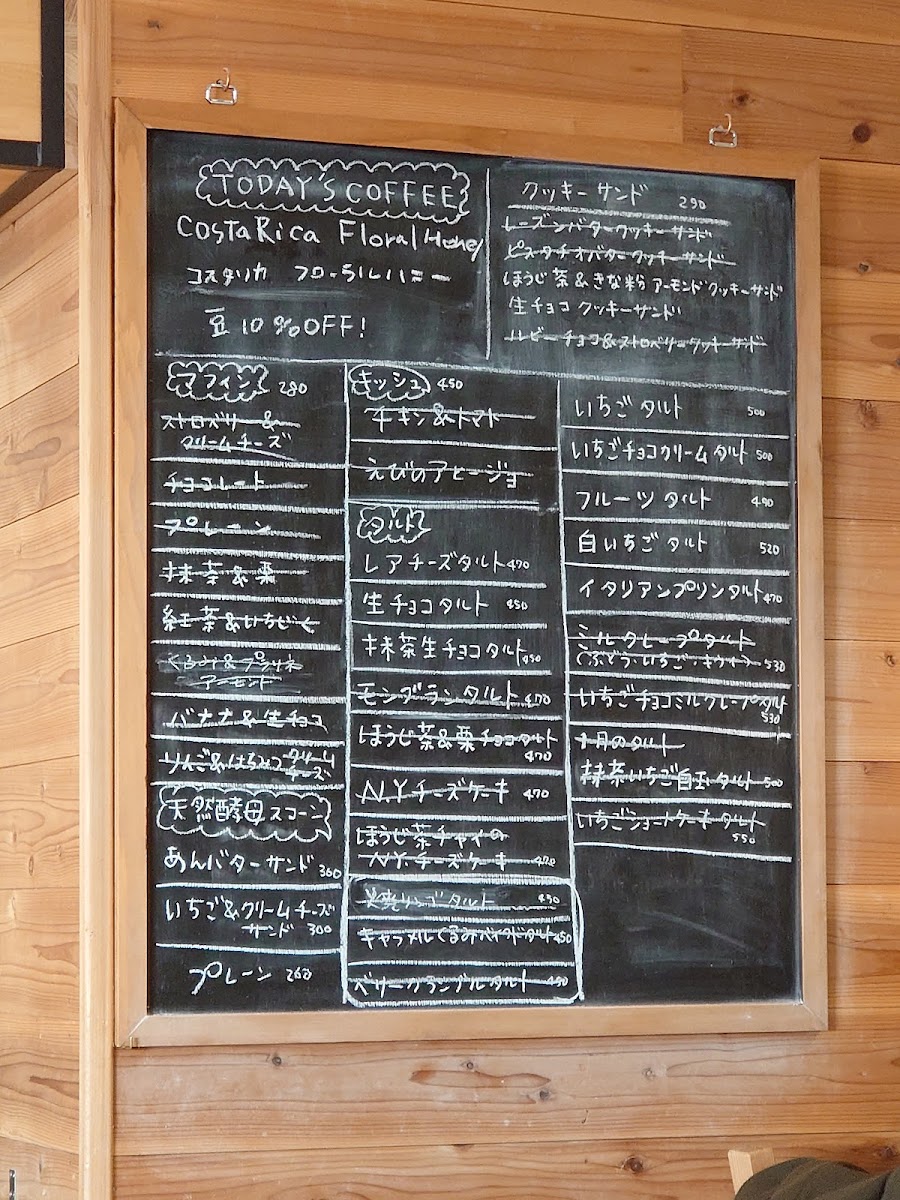 TODAY'S COFFEE
Costa Rica Floral Honey
コスタリカ フローラルハニー
豆 10%OFF!
クッキーサンド 290
レーズンバタークッキーサンド
ピスタチオバタークッキーサンド
ほうじ茶&きな粉アーモンドクッキーサンド
生チョコクッキーサンド
ルビーチョコ&ストロベリークッキーサンド
マフィン 280
ストロベリー&
クリームチーズ
チョコレート
プレーン
抹茶&栗
紅茶&いちじく
くるみ&プラリネ
アーモンド
バナナ&生チョコ
りんご&はちみつクリーム
チーズ
天然酵母スコーン
あんバターサンド 300
いちご&クリームチーズ
サンド 300
プレーン 260
キッシュ 450
チキン&トマト
えびのアヒージョ
タルト
レアチーズタルト 470
生チョコタルト 450
抹茶生チョコタルト 450
モンブランタルト 470
ほうじ茶&栗チョコタルト
470
N.Yチーズケーキ 470
ほうじ茶チャイの
N.Y.チーズケーキ 470
リンゴタルト 450
キャラメルくるみベイクドタルト 450
ベリークランブルタルト 450
いちごタルト 500
いちごチョコクリームタルト 500
フルーツタルト 490
白いちごタルト 520
イタリアンプリンタルト 470
ミルクレープタルト
(ぶどう・いちご・キウイ) 530
いちごチョコミルクレープタルト
530
1月のタルト
抹茶いちご白玉タルト 500
いちごショートケーキタルト
550